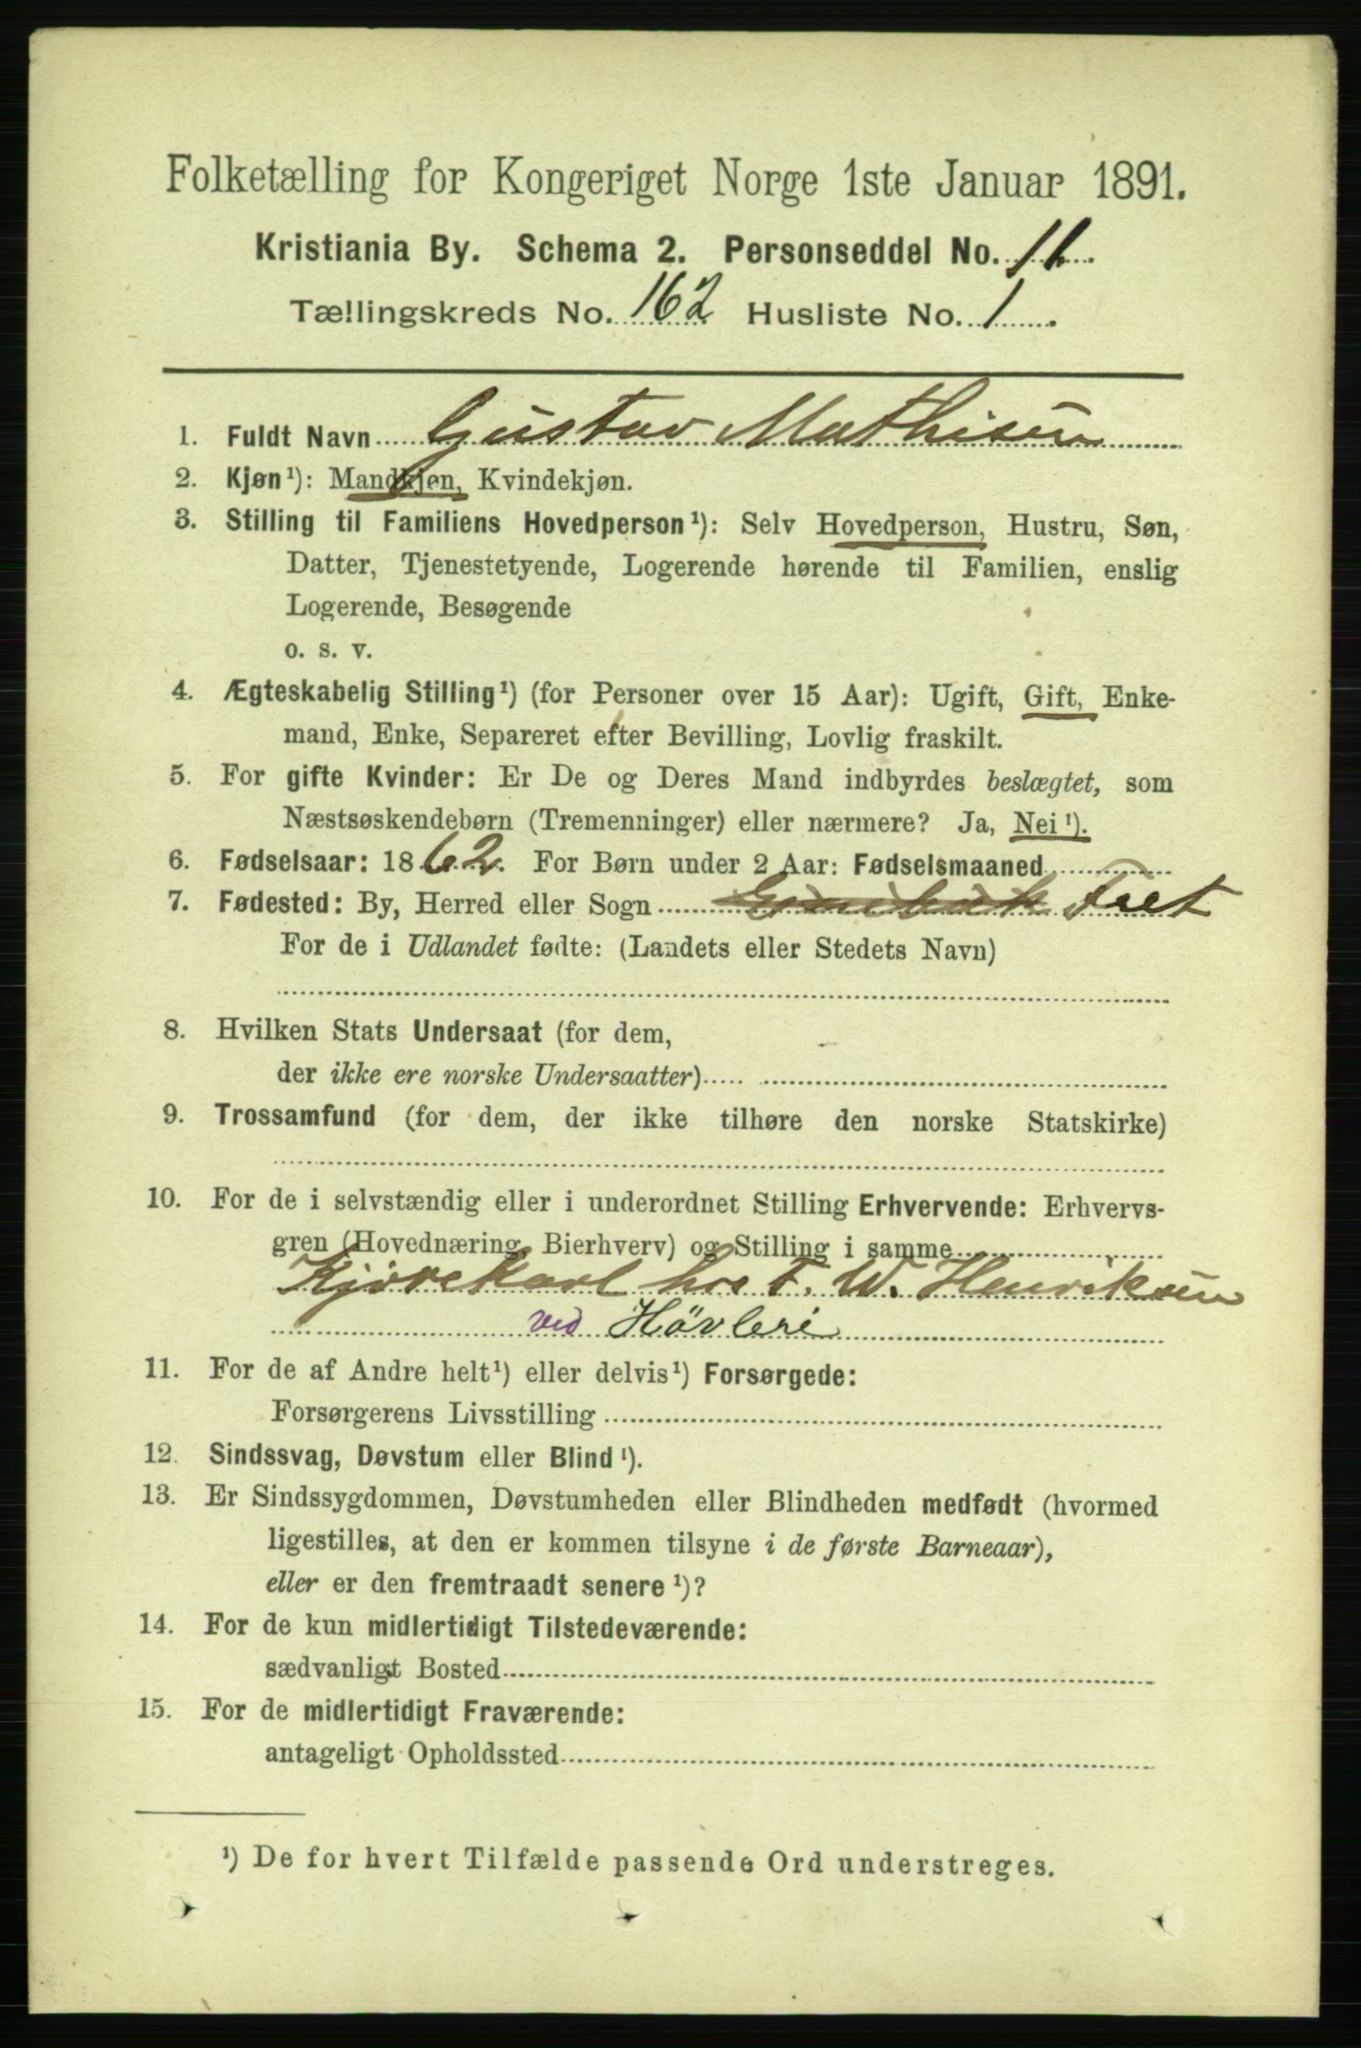 Folketælling for Kongeriget Norge 1ste Januar 1891.
Kristiania By. Schema 2. Personseddel No. 11.
Tællingskreds No. 162 Husliste No. 1.
1. Fuldt Navn Gustav Mathisen
2. Kjøn¹): Mandkjøn, Kvindekjøn.
3. Stilling til Familiens Hovedperson¹): Selv Hovedperson, Hustru, Søn,
Datter, Tjenestetyende, Logerende hørende til Familien, enslig
Logerende, Besøgende
o. s. v.
4. Ægteskabelig Stilling¹) (for Personer over 15 Aar): Ugift, Gift, Enke-
mand, Enke, Separeret efter Bevilling, Lovlig fraskilt.
5. For gifte Kvinder: Er De og Deres Mand indbyrdes beslægtet, som
Næstsøskendebørn (Tremenninger) eller nærmere? Ja, Nei¹).
6. Fødselsaar: 1862. For Børn under 2 Aar: Fødselsmaaned
7. Fødested: By, Herred eller Sogn Fået
For de i Udlandet fødte: (Landets eller Stedets Navn)
8. Hvilken Stats Undersaat (for dem,
der ikke ere norske Undersaatter)
9. Trossamfund (for dem, der ikke tilhøre den norske Statskirke)
10. For de i selvstændig eller i underordnet Stilling Erhvervende: Erhvervs-
gren (Hovednæring, Bierhverv) og Stilling i samme
Kjørekarl hos F. W. Henriksen
ved Høvleri
11. For de af Andre helt¹) eller delvis¹) Forsørgede:
Forsørgerens Livsstilling
12. Sindssvag, Døvstum eller Blind¹).
13. Er Sindssygdommen, Døvstumheden eller Blindheden medfødt (hvormed
ligestilles, at den er kommen tilsyne i de første Barneaar),
eller er den fremtraadt senere¹)?
14. For de kun midlertidigt Tilstedeværende:
sædvanligt Bosted
15. For de midlertidigt Fraværende:
antageligt Opholdssted
¹) De for hvert Tilfælde passende Ord understreges.